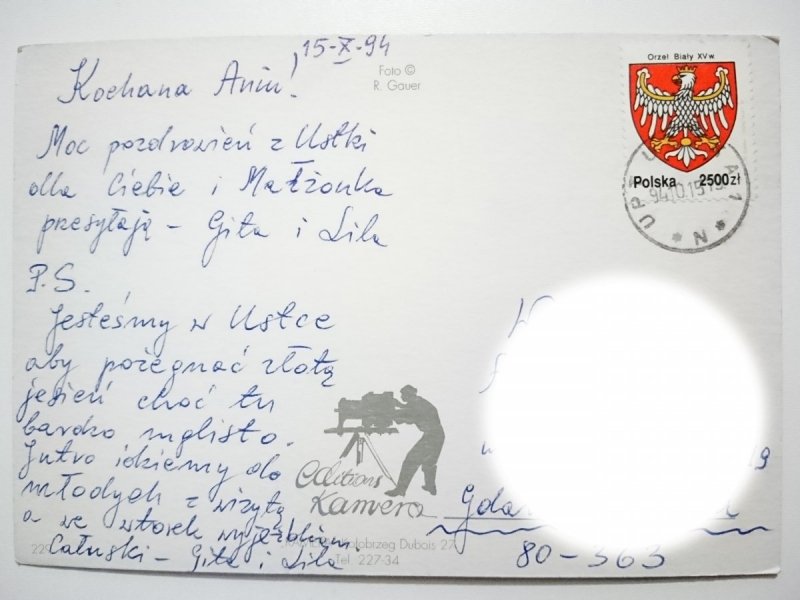 15-X-94
Foto ©
R. Gauer
Kochana Aniu!
Orzeł Biały XV w.
Polska 2500zł
94.10.15
Moc pozdrowień z Ustki
dla Ciebie i Małżonka
przesyłają - Gita i Lila
P.S.
Jesteśmy w Ustce
aby pożegnać złotą
jesień choć tu
bardzo mglisto.
Jutro idziemy do
młodych z wizytą
a we wtorek wyjeżdżam.
Całuski - Gita i Lila
editions
Kamera
Kołobrzeg Dubois 27
Tel. 227-34
19
80-363